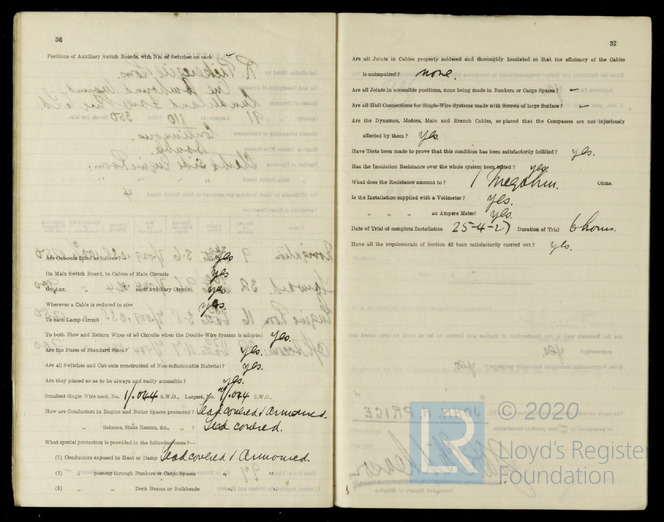 36
Positions of Auxiliary Switch Boards, with No. of Switches on each
Are Cut-outs fitted as follows:—
yes
On Main Switch Board, to Cables of Main Circuits yes
On Aux. " " each Auxiliary Circuit yes
Wherever a Cable is reduced in size yes.
To each Lamp Circuit yes.
To both Flow and Return Wires of all Circuits when the Double-Wire System is adopted yes.
Are the Fuses of Standard Sizes? yes.
Are all Switches and Cut-outs constructed of Non-inflammable Material? yes.
Are they placed so as to be always and easily accessible? yes.
Smallest Single Wire used, No. 1/.044 S.W.G., Largest, No. /.044 S.W.G.
How are Conductors in Engine and Boiler Spaces protected? Lead covered & Armoured.
" " Saloons, State Rooms, &c., " ? Lead covered.
What special protection is provided in the following cases?—
(1) Conductors exposed to Heat or Damp Lead covered & Armoured.
(2) " passing through Bunkers or Cargo Spaces "
(3) " " Deck Beams or Bulkheads "
37
Are all Joints in Cables properly soldered and thoroughly insulated so that the efficiency of the Cables
is unimpaired? none.
Are all Joints in accessible positions, none being made in Bunkers or Cargo Spaces? —
Are all Hull Connections for Single-Wire Systems made with Screws of large Surface? —
Are the Dynamos, Motors, Main and Branch Cables, so placed that the Compasses are not injuriously
affected by them? yes.
Have Tests been made to prove that this condition has been satisfactorily fulfilled? yes.
Has the Insulation Resistance over the whole system been tested? yes.
What does the Resistance amount to? 1 Megohm. Ohms.
Is the Installation supplied with a Voltmeter? yes.
" " " an Ampere Meter? yes.
Date of Trial of complete Installation 25-4-27 Duration of Trial 6 hours.
Have all the requirements of Section 42 been satisfactorily carried out? yes.
LR © 2020
Lloyd's Register
Foundation